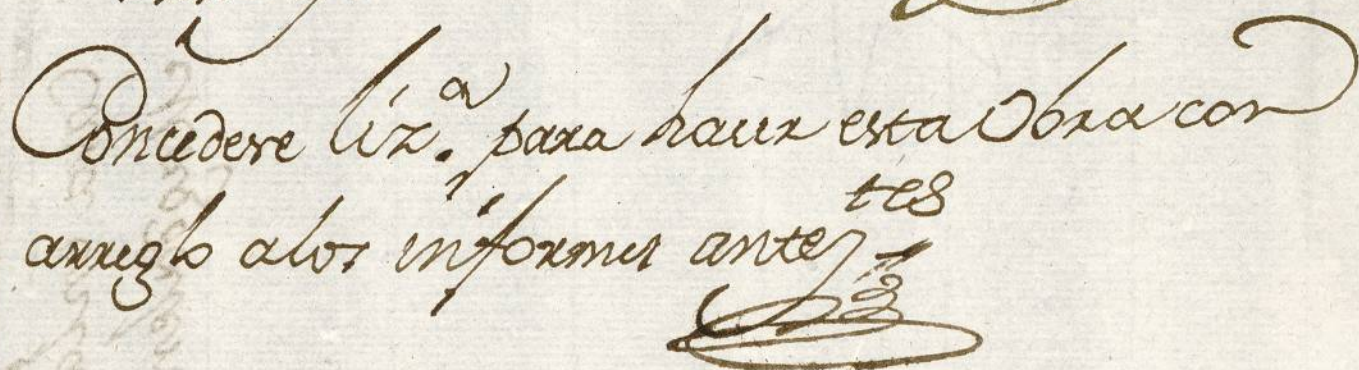 Concedese liz.ª para hacer esta Obra con
arreglo alos informes antez.tes